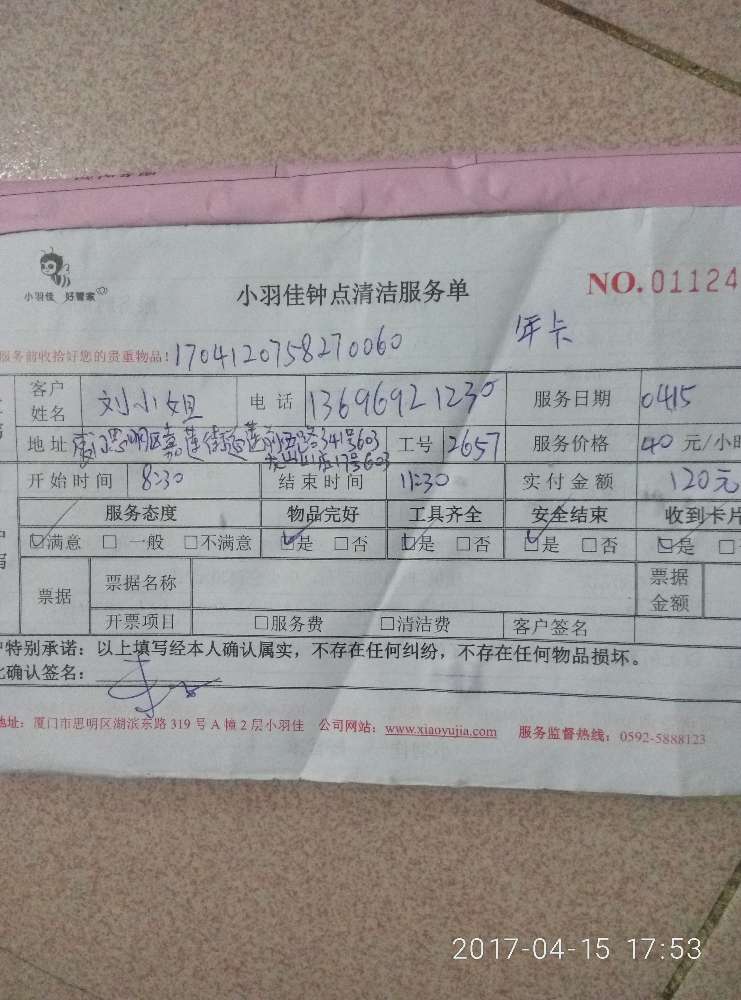 小羽佳 好管家
小羽佳钟点清洁服务单
NO.01124
年卡
服务前收拾好您的贵重物品：1704120758270060
客户姓名 刘小姐 电话 13696921230 服务日期 0415
地址 思明区嘉莲街道莲前西路341号603 工号 2657 服务价格 40 元/小时
17号603
开始时间 8:30 结束时间 11:30 实付金额 120元
服务态度 物品完好 工具齐全 安全结束 收到卡片
☑满意 □一般 □不满意 ☑是 □否 ☑是 □否 ☑是 □否 ☑是 □
票据 票据名称 票据金额
开票项目 □服务费 □清洁费 客户签名
特别承诺：以上填写经本人确认属实，不存在任何纠纷，不存在任何物品损坏。
确认签名：
地址：厦门市思明区湖滨东路 319 号 A 幢 2 层小羽佳 公司网站：www.xiaoyujia.com 服务监督热线：0592-5888123
2017-04-15 17:53